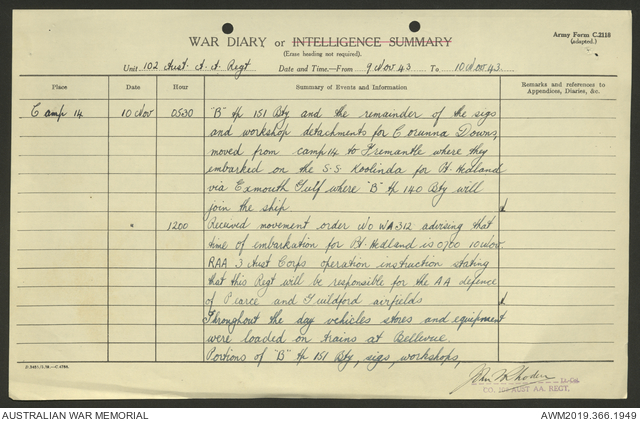 Army Form C.2118
(adapted.)
WAR DIARY or INTELLIGENCE SUMMARY
(Erase heading not required).
Unit 102 Aust. A.A. Regt Date and Time.—From 9 Nov 43 To 10 Nov 43
Place Date Hour Summary of Events and Information Remarks and references to Appendices, Diaries, &c.
Camp 14 10 Nov 0530 "B" tp 151 Bty and the remainder of the sigs
and workshop detachments for Corunna Downs,
moved from camp 14 to Fremantle where they
embarked on the S.S Koolinda for Pt. Hedland
via Exmouth Gulf where "B" tp 140 Bty will
join the ship.
" 1200 Received movement order No WA-312 advising that
time of embarkation for Pt. Hedland is 0700 10 Nov.
RAA 3 Aust Corps operation instruction stating
that this Regt will be responsible for the AA defence
of Pearce and Guildford airfields
Throughout the day vehicles stores and equipment
were loaded on trains at Bellevue
Portions of "B" tp 151 Bty, sigs, workshops,
John W Rhoden
CO. 102 AUST AA. REGT.
AUSTRALIAN WAR MEMORIAL AWM2019.366.1949